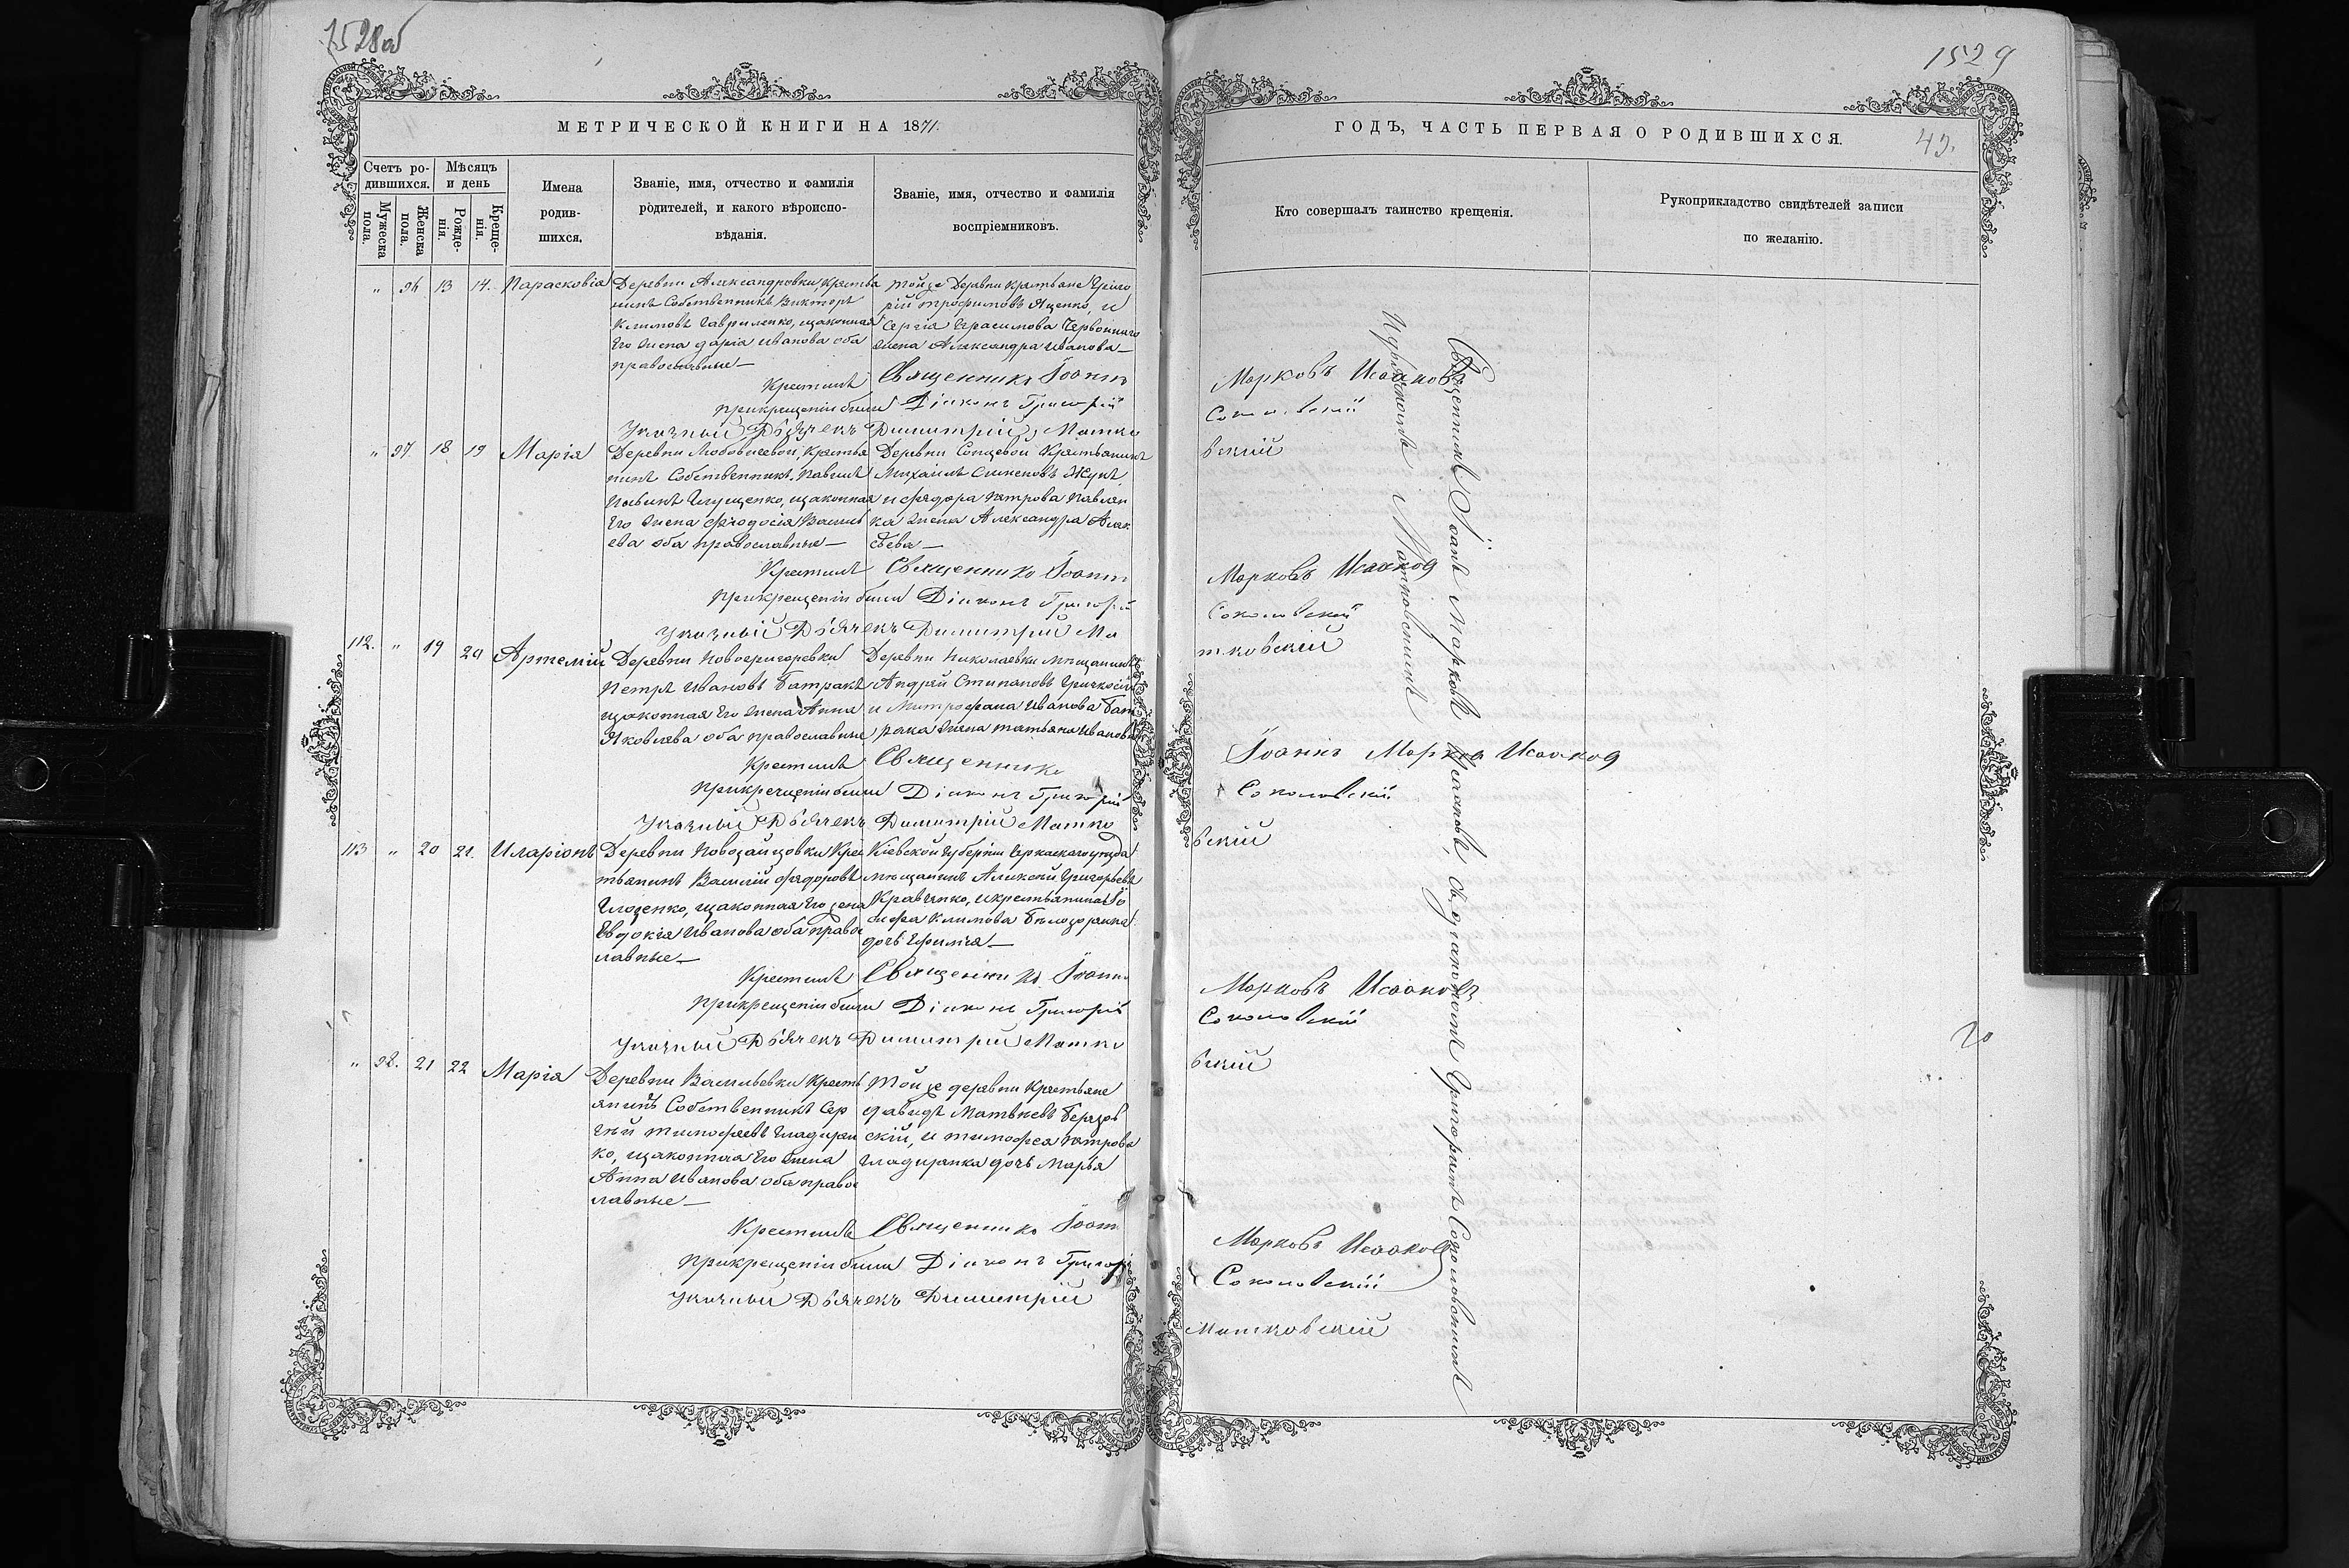 1528об
МЕТРИЧЕСКОЙ КНИГИ НА 1871.
Счетъ ро-
дившихся.
Мѣсяцъ
и день
Мужеска
пола.
Женска
пола.
Рожде-
нія.
Креще-
нія.
Имена
родив-
шихся.
Званіе, имя, отчество и фамилія
родителей, и какого вѣроиспо-
вѣданія.
Званіе, имя, отчество и фамилія
воспріемниковъ.
" 96 13 14. Парасковіа
Деревни Александровки, Крестья
нинъ Собственникъ Викторъ
Климовъ Гавриленко, изаконная
Его жена Даріа Иванова оба
православные —
Тойже Деревни Крестьяне Григо
рій Трофимовъ Яценко, и
Сергія Герасимова Червоннаго
жена Александра Иванова —
Крестилъ Священникъ Іоаннъ
При крещеніи были Діаконъ Григорій
Указный Дьячекъ Димитрій Матко
" 97 18 19 Маріа
Деревни Любовичевой, Крестья
нинъ Собственникъ Павелъ
Глущенко, изаконная
Его жена Феодосія Василь
ева оба православные —
Деревни Сонцевой Крестьянинъ
Михаилъ Симеоновъ Жукъ
и Федора Петрова Павлен
ка жена Александра Алек
сѣева —
Крестилъ Священникъ Іоаннъ
При крещеніи были Діаконъ Григорій
Указный Дьячекъ Димитрій Ма
112. " 19 20 Артемій
Деревни Новогригоревки
Петръ Ивановъ Батракъ
изаконная Его жена Анна
Яковлева оба православные
Деревни Николаевки мѣщанинъ
Андрей Степановъ
и Митрофана Иванова Бат
рака жена Татьяна Иванова
Крестилъ Священникъ
При крещеніи были Діаконъ Григорій
Указный Дьячекъ Димитрій Матко
113 " 20 21. Иларіонъ
Деревни Новозаицовки Крес
тьянинъ Василій Федоровъ
изаконная Его жена
Евдокія Иванова оба право
лавные —
Кіевской Губерніи Черкаскаго уезда
мѣщанинъ Алексей Григорьевъ
Кравченко, и крестьянина Іо
сифа Климова
дочь Ефимія —
Крестилъ Священникъ Іоаннъ
При крещеніи были Діаконъ Григорій
Указный Дьячекъ Димитрій Матко
" 98. 21 22 Маріа
Деревни Васильевки Кресть
янинъ Собственникъ Сер
гѣй Тимофеевъ Гладчен
ко, изаконная Его жена
Анна Иванова оба правос
лавные —
Той же деревни Крестьяне
Давидъ Матвеевъ Березов
скій, и Тимофея Петрова
дочь Марья
Крестилъ Священникъ Іоаннъ
При крещеніи были Діаконъ Григорій
Указный Дьячекъ Димитрій
1529
ГОДЪ, ЧАСТЬ ПЕРВАЯ О РОДИВШИХСЯ.
43.
Кто совершалъ таинство крещенія.
Рукоприкладство свидѣтелей записи
по желанію.
Марковъ Исааковъ
Соколовскій
вскій
Марковъ Исааковъ
Соколовскій
тковскій
Іоаннъ Марковъ Исааковъ
Соколовскій
вскій
Марковъ Исааковъ
Соколовскій
вскій
Марковъ Исааковъ
Соколовскій
Матковскій
Священникъ Іоаннъ Марковъ Исааковъ, съ діакономъ Григоріемъ Соколовскимъ
И дьячкомъ Матковскимъ